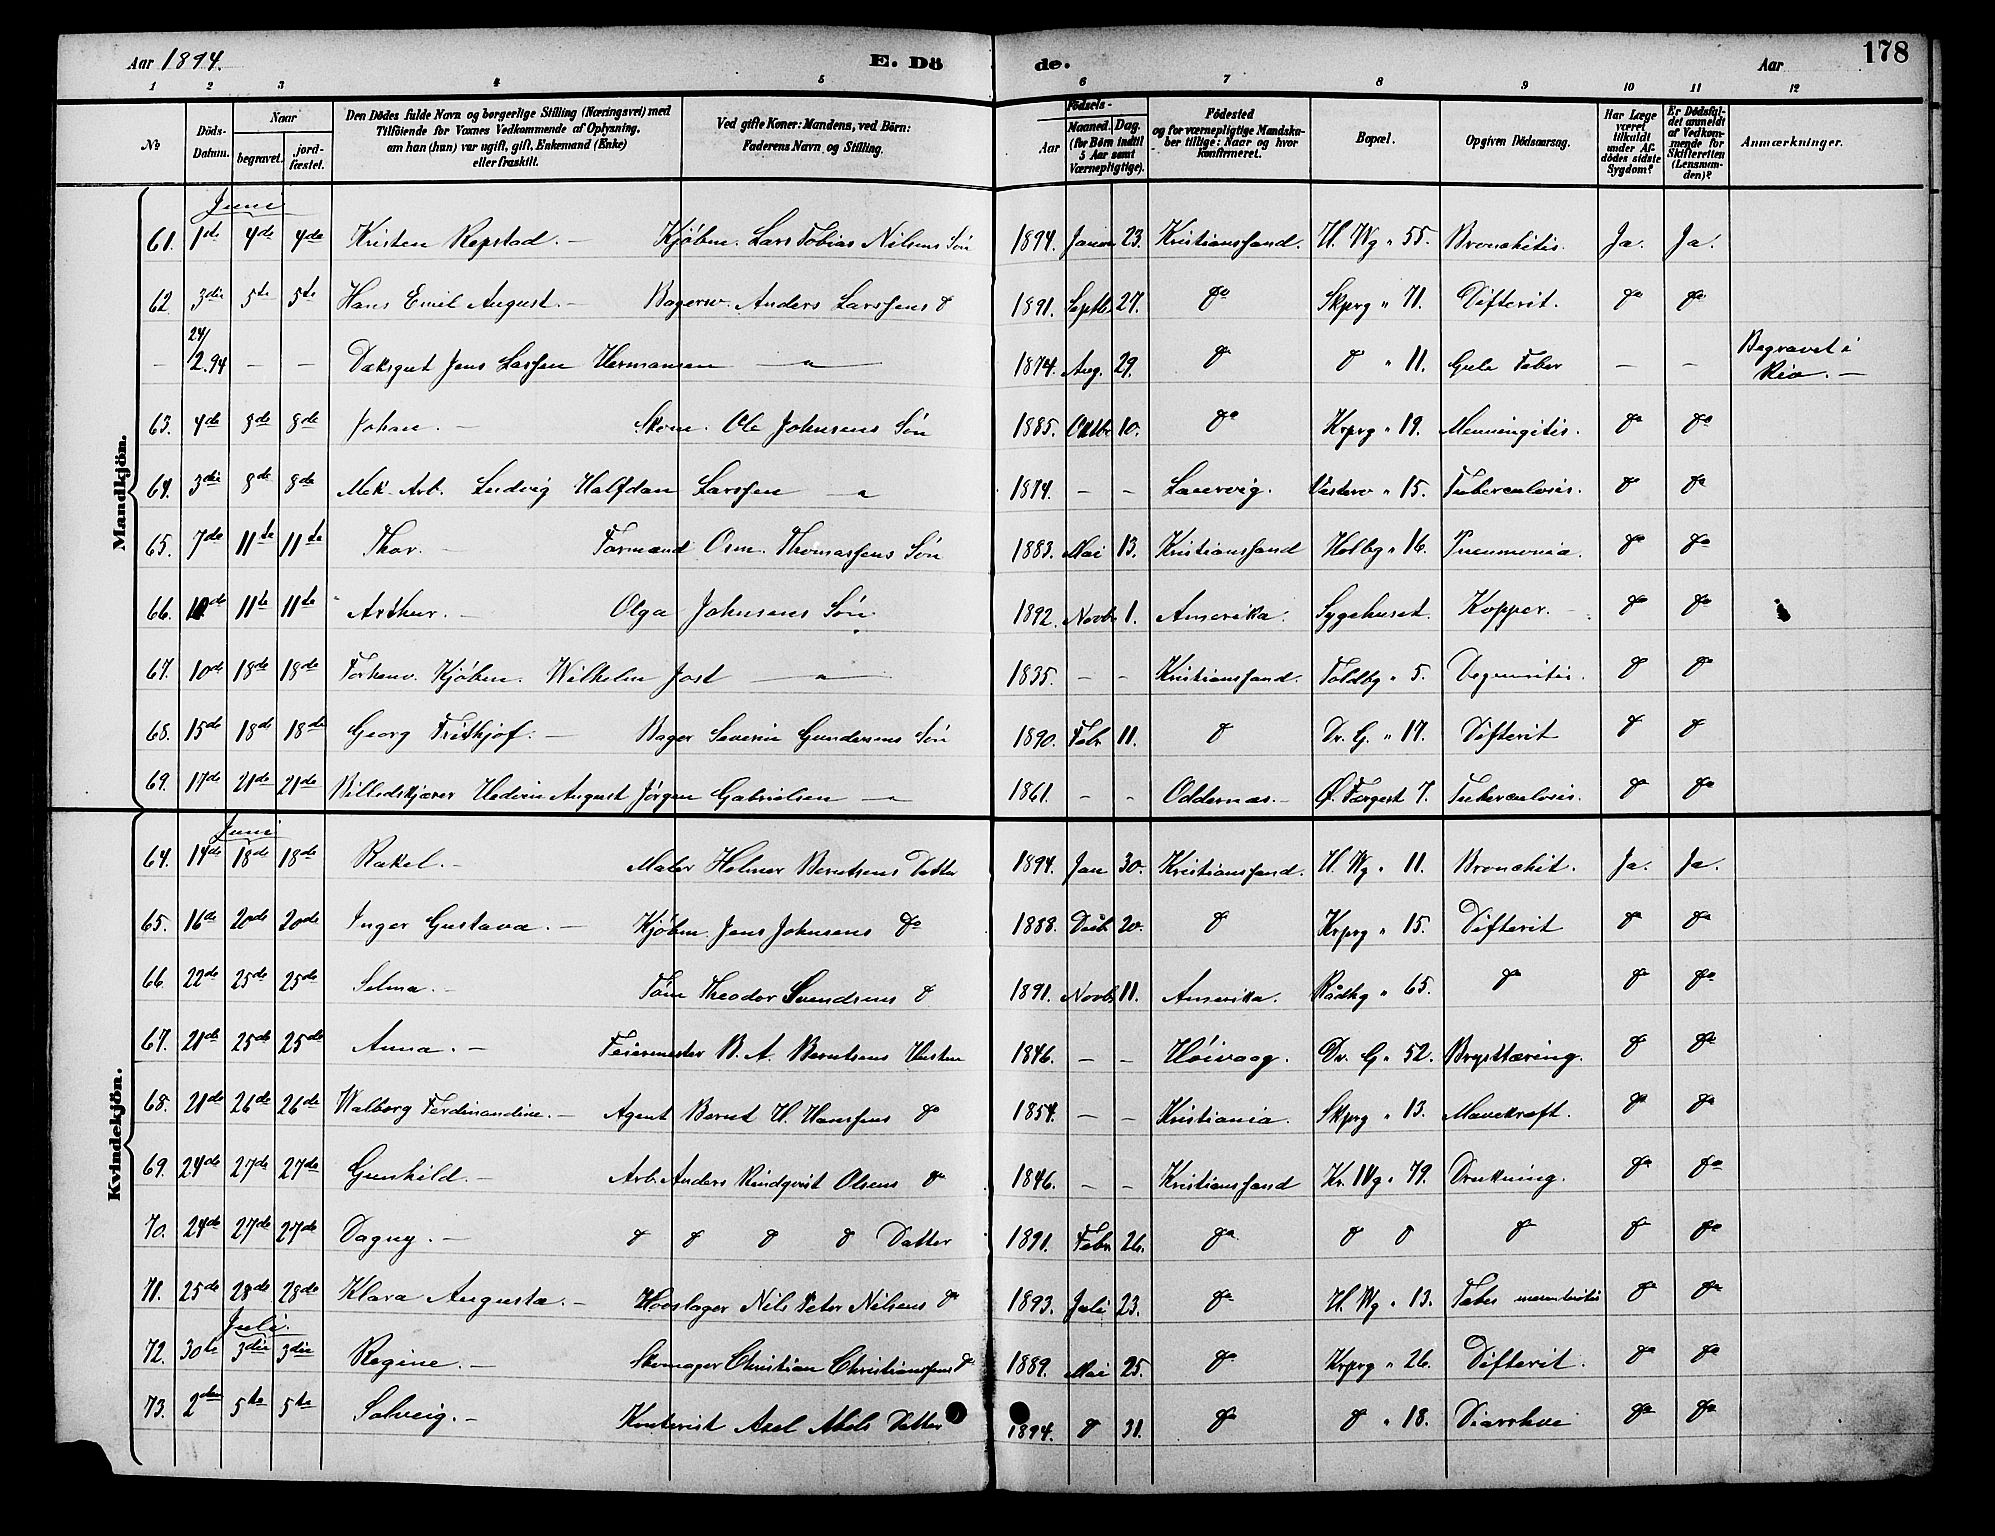 Aar 1894. E. Dö de. Aar 178
1 2 3 4 5 6 7 8 9 10 11 12
No Döds-Datum. Naar begravet. jordfæstet. Den Dödes fulde Navn og borgerlige Stilling (Næringsvei) med Tilföiende for Voxnes Vedkommende af Oplysning, om han (hun) var ugift, gift, Enkemand (Enke) eller fraskilt. Ved gifte Koner: Mandens, ved Börn: Faderens Navn og Stilling. Födsels- Aar Maaned. Dag. (for Börn indtil 5 Aar samt Værnepligtige). Födested og for værnepligtige Mandskaber tillige: Naar og hvor konfirmeret. Bopæl. Opgiven Dödsaarsag. Har Læge været tilkaldt under Afdödes sidste Sygdom? Er Dödsfaldet anmeldt af Vedkommende for Skifteretten (Lensmanden)? Anmærkninger.
Mandkjön.
Juni
61. 1ste 4de 4de Kristen Repstad. – Kjöbm. Lars Tobias Nilsens Sön 1894. Januar 23. Kristianssand. H. Wg " 55. Bronchitis. Ja. Ja.
62 3die 5te 5te Hans Emil August. – Bagersv. Anders Larssens do 1891. Septbr 27. do Skprg " 71. Difterit. do do
– 24/2.94 – – Dæksgut Jens Lassen Hermansen – " – 1874. Aug. 29. do do " 11. Gule Feber – – Begravet i Rio. –
63. 4de 8de 8de Johan. – Skom. Ole Johnsens Sön 1885. Oktbr 10. do Krprg " 19. Menningitis. do do
64. 3die 8de 8de Mek. Arb. Ludvig Halfdan Larssen – " 1874. – – Laurvig. Vesterv " 15. Tuberculosis. do do
65. 7de 11te 11te Thor. – Formand Osm. Thomassens Sön 1883. Mai 13. Kristianssand Holbg " 16. Pneumonia. do do
66. 10de 11te 11te Arthur. – Olga Johnsens Sön. 1892. Novbr 1. Amerika. Sygehuset. Kopper. – do do
67. 10de 18de 18de Forhenv. Kjöbm. Wilhelm Jost – " – 1835. – – Kristianssand. Toldbg " 5. do do
68. 15de 18de 18de Georg Frithjof. – Bager Severin Gundersens Sön 1890. Febr 11. do Dr. G. " 17. Difterit do do
69. 17de 21de 21de Billedskjærer Hedevin August Jörgen Gabrielsen – " 1861. – – Oddernæs. – Ø. Færgest 7. Tuberculosis. do do
Kvindekjön.
Juni
64. 14de 18de 18de Rakel. – Maler Helmer Berntsens Datter 1894. Jan 30. Kristianssand. H. Wg " 11. Bronchit. Ja. Ja.
65. 16de 20de 20de Inger Gustava. – Kjöbm. Jens Johnsens do 1888. Decb. 20. do Krprg " 15. Difterit do do
66. 22de 25de 25de Selma. – Töm Theodor Svendsens do 1891. Novbr 11. Amerika. Rådhg " 65. do do do
67. 21de 25de 25de Anna. – Feiermester B. A. Berntsens Hustru 1846. – – Höivaag. Dr. G. " 52. Brysttæring. do do
68. 21de 26de 26de Walborg Ferdinandine. – Agent Bernt H. Hanssens do 1854. – – Kristiania. Skprg " 13. Mavekræft. do do
69. 24de 27de 27de Gunhild. – Arb. Anders Rindqvist Olsens do 1846. – – Kristianssand Kr. IVg " 79. Drukning. do do
70. 24de 27de 27de Dagny. – do do do do Datter 1891. Febr. 26. do do do do do do
71. 25de 28de 28de Klara Augusta. – Hovslager Nils Peter Nilsens do 1893. Juli 23. do H. Wg " 13. do do
Juli.
72. 30te 3die 3die Regine. – Skomager Christian Christianssens do 1889. Mai 25. do Krprg " 26. Difterit. do do
73. 2den 5te 5te Solveig. – Kontorist Axel Abels Datter 1894. do 31. do do " 18. Diarrhoe do do